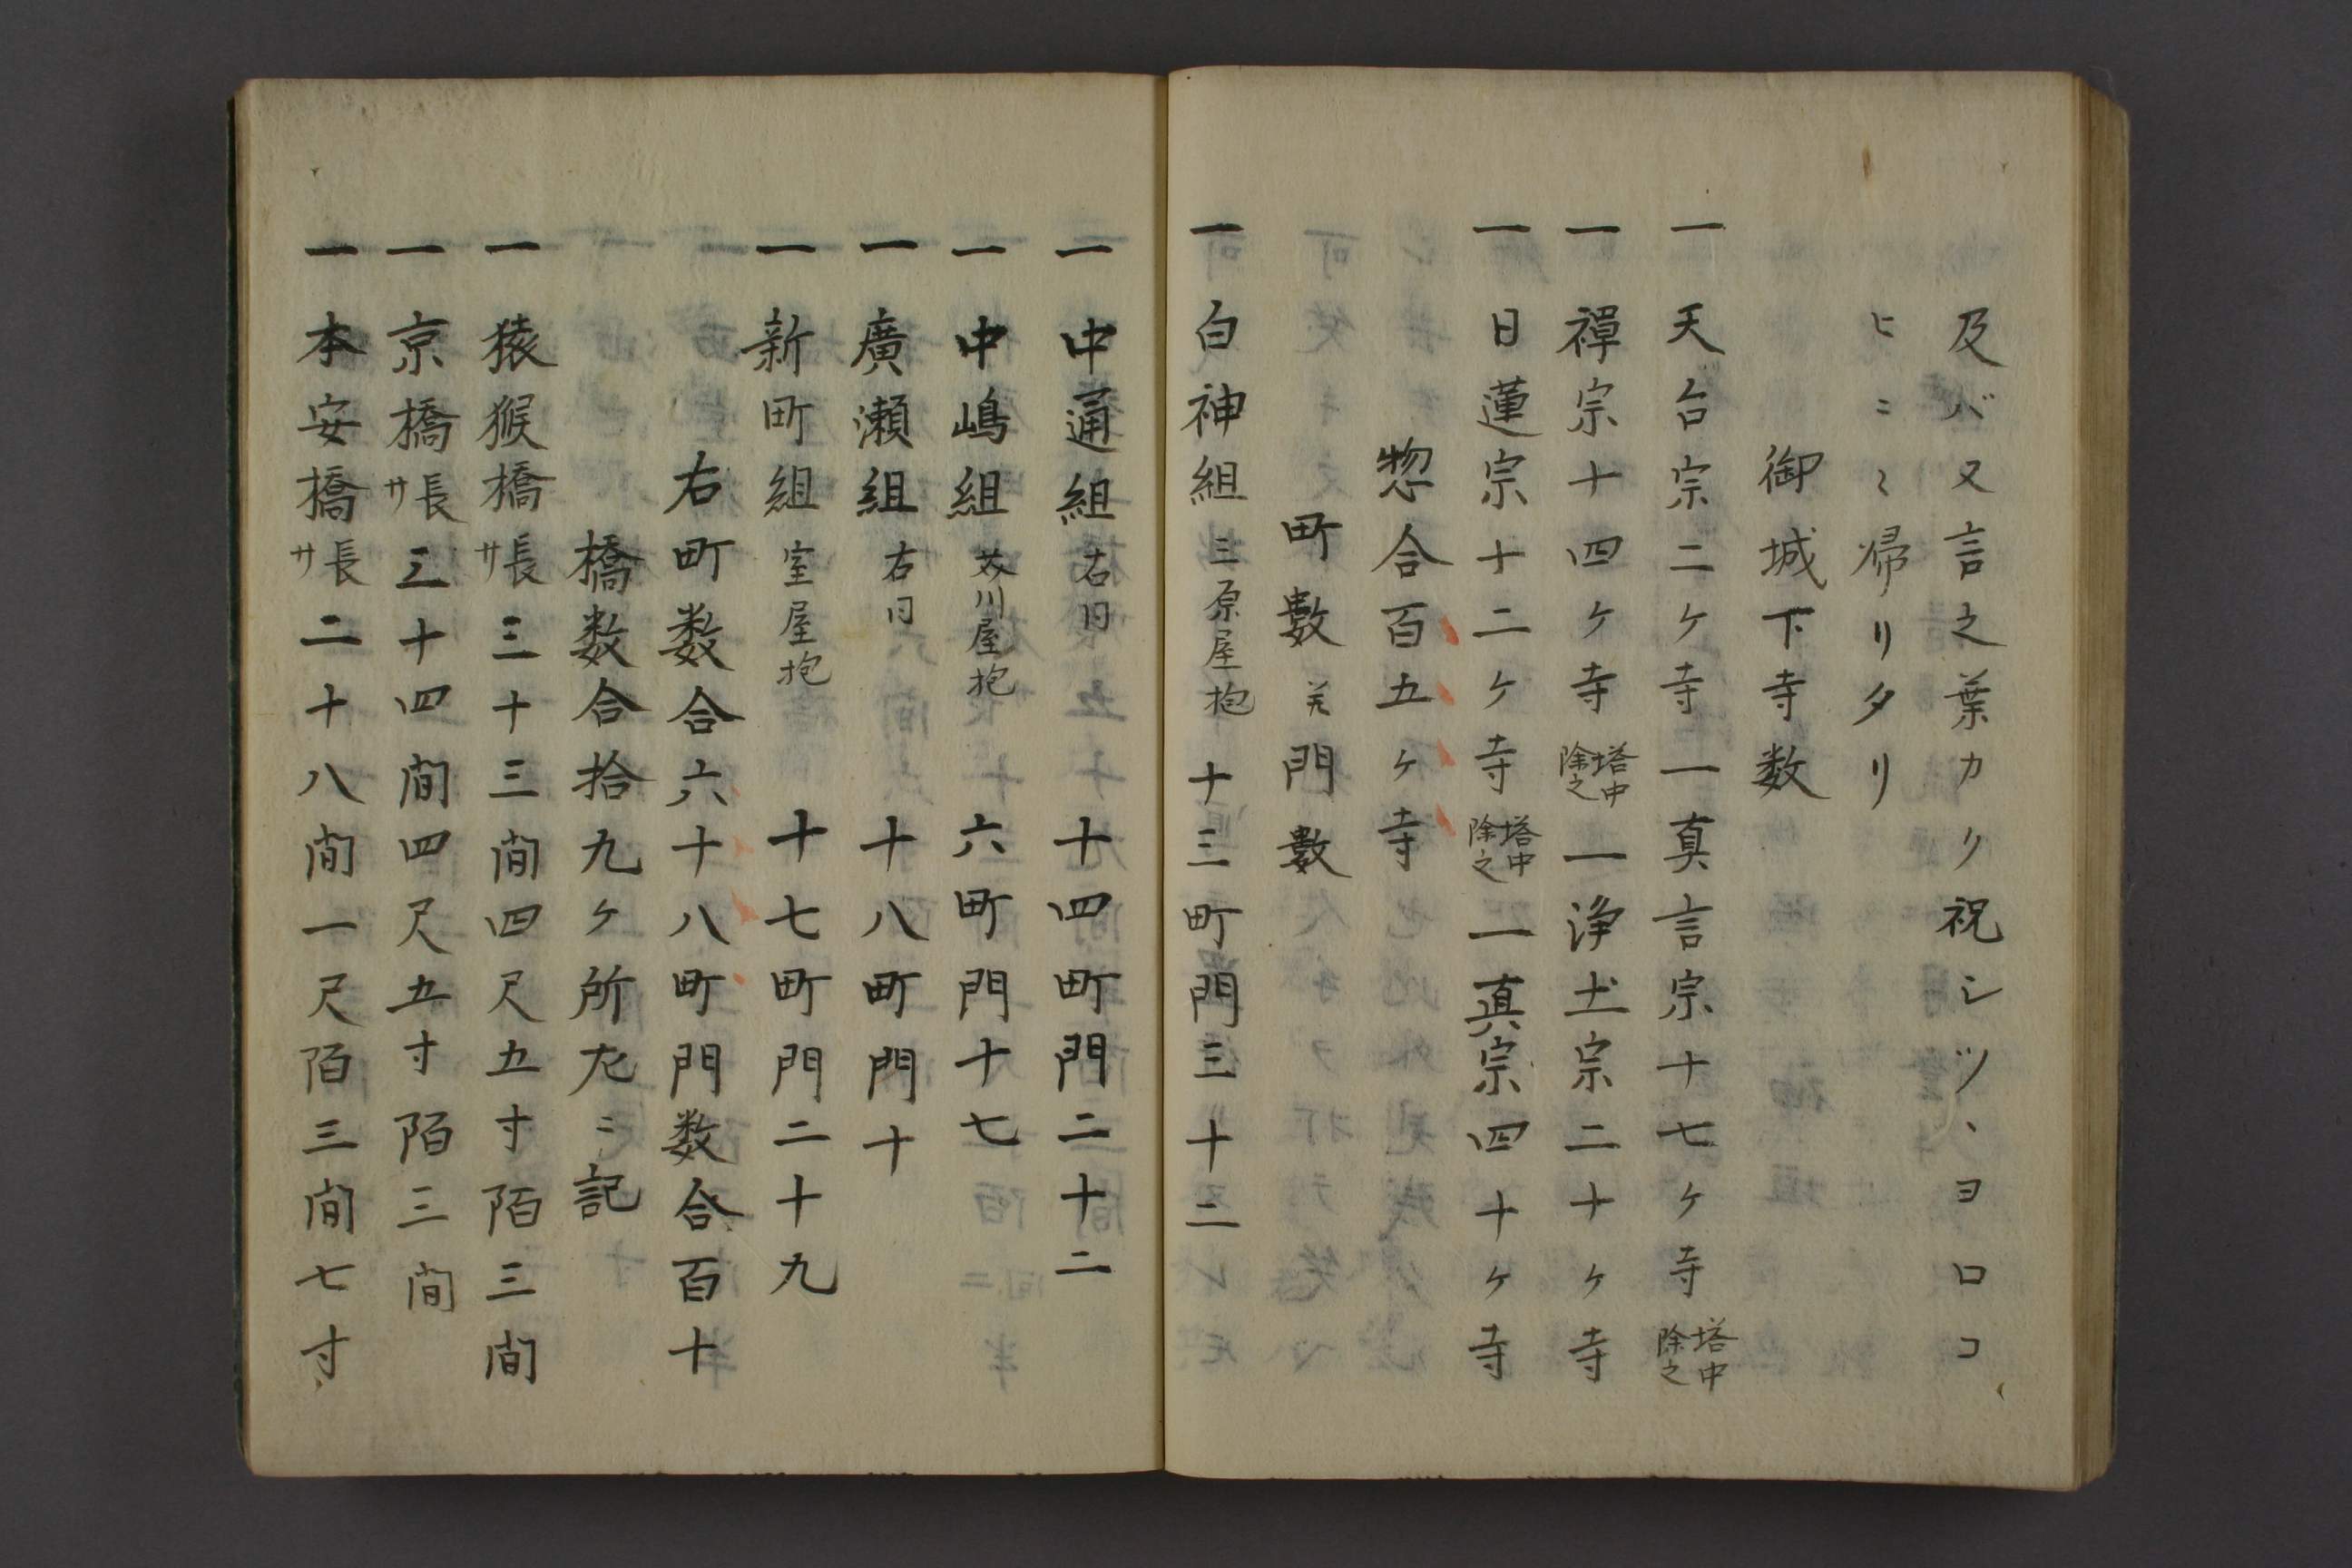 及バ又言之葉カク祝シツヽヨロコ
ヒニ〻帰リタリ
御城下寺数
一天台宗二ケ寺一真言宗十七ケ寺塔中除之
一禅宗十四ケ寺塔中除之一浄土宗二十ケ寺
一日蓮宗十二ケ寺塔中除之一真宗四十ケ寺
惣合百五ケ寺
町數并門數
一白神組三原屋抱十三町門三十二
一中通組右同十四町門二十二
一中嶋組芥川屋抱六町門十七
一廣瀬組右同十八町門十
一新町組室屋抱十七町門二十九
右町数合六十八町門数合百十
橋数合拾九ケ所左ニ記
一猿猴橋長サ三十三間四尺五寸陌三間
一京橋長サ三十四間四尺五寸陌三間
一本安橋長サ二十八間一尺陌三間七寸